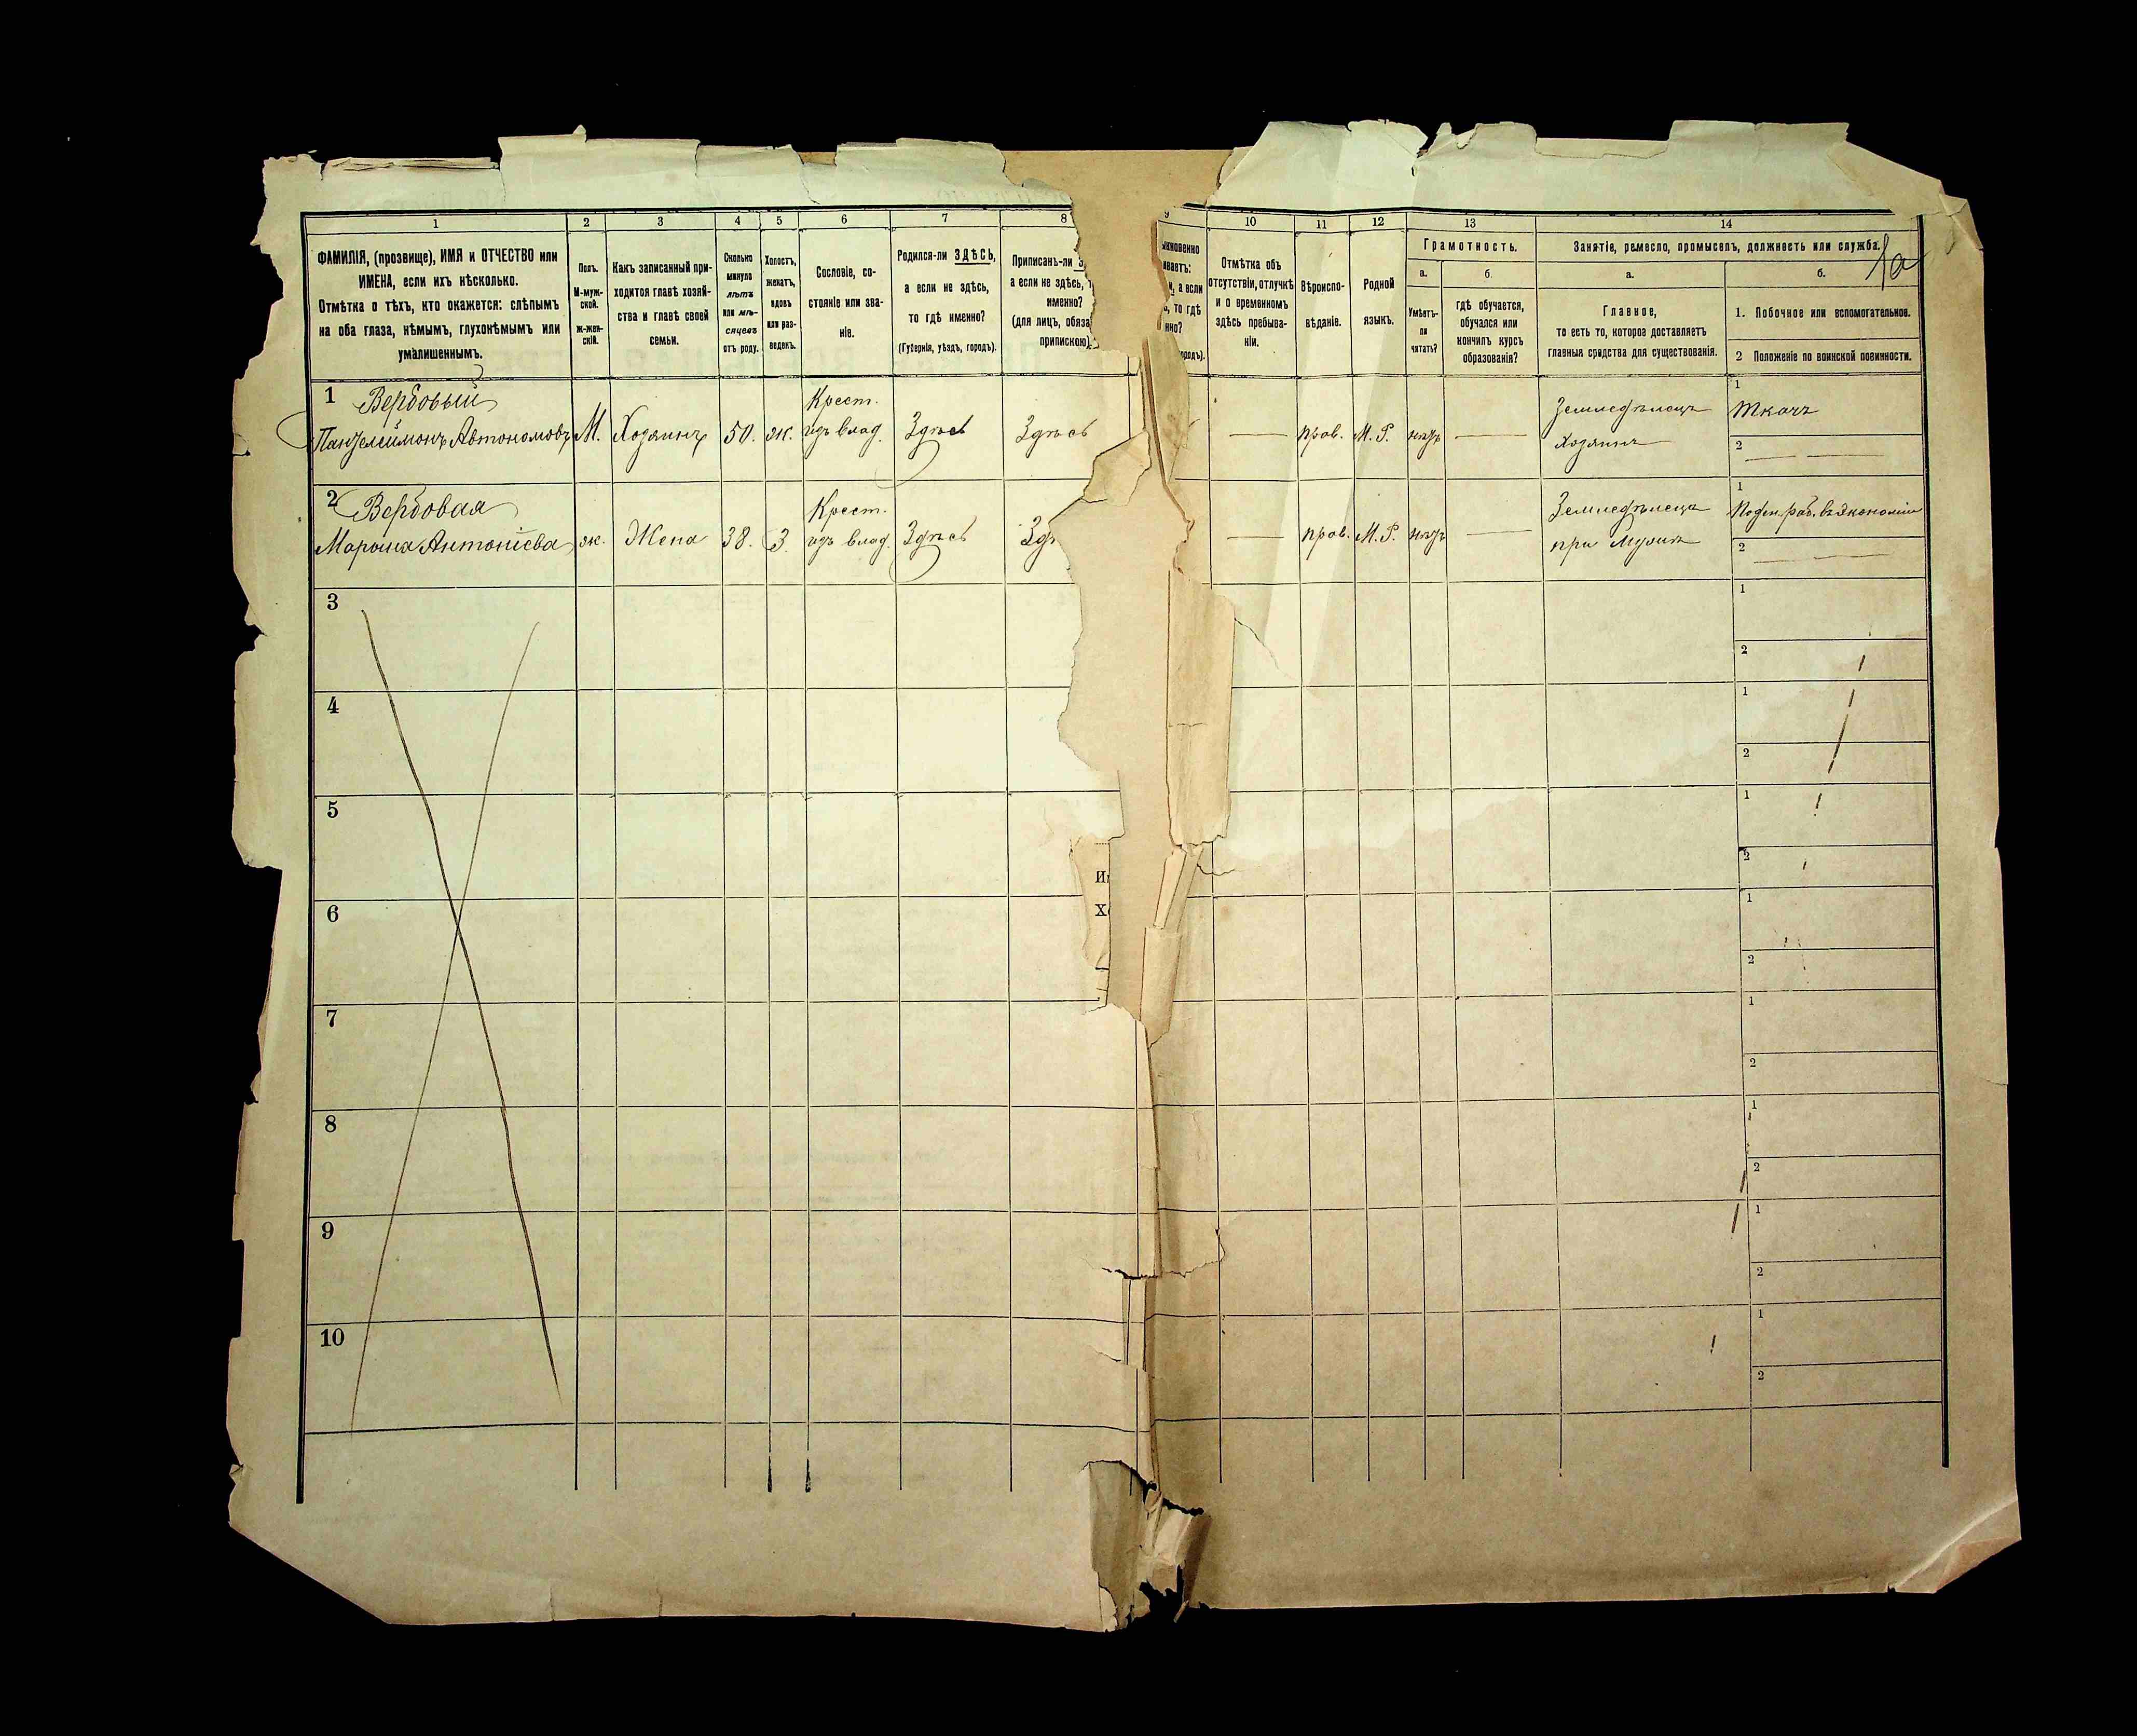 1 2 3 4 5 6 7 8
ФАМИЛІЯ, (прозвище), ИМЯ и ОТЧЕСТВО или
ИМЕНА, если ихъ нѣсколько.
Отмѣтка о тѣхъ, кто окажется: слѣпымъ
на оба глаза, нѣмымъ, глухонѣмымъ или
умалишеннымъ.
Полъ.
М-муж-
ской.
ж-жен-
скій.
Какъ записанный при-
ходится главѣ хозяй-
ства и главѣ своей
семьи.
Сколько
минуло
лѣтъ
или мѣ-
сяцевъ
отъ роду.
Холостъ,
женатъ,
вдовъ
или раз-
веденъ.
Сословіе, со-
стояніе или зва-
ніе.
Родился-ли ЗДѢСЬ,
а если не здѣсь,
то гдѣ именно?
(Губернія, уѣздъ, городъ).
Приписанъ-ли
а если не здѣсь,
именно?
(для лицъ, обяза
припискою)
9 10 11 12 13 14
а если
то гдѣ
Отмѣтка объ
отсутствіи, отлучкѣ
и о временномъ
здѣсь пребыва-
ніи.
Вѣроиспо-
вѣданіе.
Родной
языкъ.
Грамотность.
а.
Умѣетъ-
ли
читать?
б.
гдѣ обучается,
обучался или
кончилъ курсъ
образованія?
Занятіе, ремесло, промыселъ, должность или служба.
а.
Главное,
то есть то, которое доставляетъ
главныя средства для существованія.
б.
1. Побочное или вспомогательное.
2 Положеніе по воинской повинности.
1а
1 Вербовый
Пантелеймонъ Автономовъ М. Хозяинъ 50. ж. Крест.
изъ влад. Здѣсь Здѣсь — прав. М. Р. нѣтъ — Земледѣлецъ
Хозяинъ 1 Ткачъ
2 —
2 Вербовая
Антоніева ж. Жена 38. З. Крест.
изъ влад. Здѣсь — прав. М. Р. нѣтъ — Земледѣлеца
при 1 Поден. раб. въ экономіи
2 —
3 1
2
4 1
2
5 1
2
6 1
2
7 1
2
8 1
2
9 1
2
10 1
2